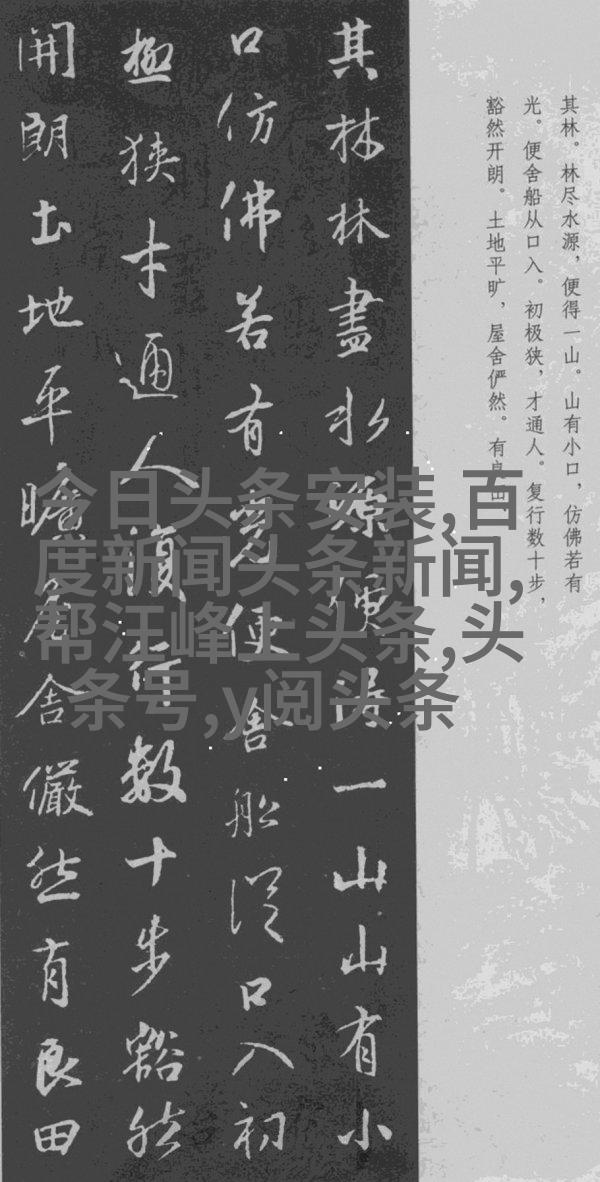 其林。林尽水源，便得一山。山有小口，仿佛若有
光。便舍船从口入。初极狭，才通人。复行数十步，
豁然开朗。土地平旷，屋舍俨然。有良田
其林林盡水源便得一山山有小
口仿佛若有光便舍船從口入初
極狹才通人復行數十步豁然
開朗土地平曠屋舍儼然有良田
今日头条安装,百
度新闻头条新闻,
帮汪峰上头条,头
条号,y阅头条